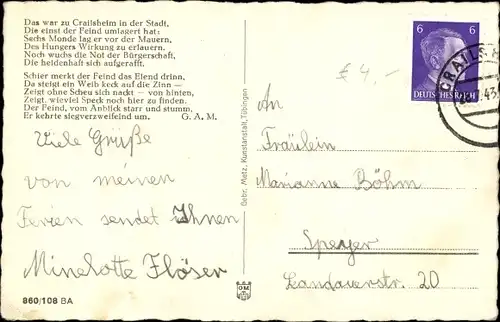 Das war zu Crailsheim in der Stadt,
Die einst der Feind umlagert hat:
Sechs Monde lag er vor der Mauern,
Des Hungers Wirkung zu erlauern.
Noch wuchs die Not der Bürgerschaft,
Die heidenhaft sich aufgerafft.
Schier merkt der Feind das Elend drinn,
Da steigt ein Weib keck auf die Zinn —
Zeigt ohne Scheu sich nackt — von hinten,
Zeigt, wieviel Speck noch hier zu finden.
Der Feind, vom Anblick starr und stumm,
Er kehrte siegverzweifelnd um. G. A. M.
Viele Grüße
von meinen
Ferien sendet Ihnen
Minelotte Flöser
860/108 BA
Gebr. Metz, Kunstanstalt, Tübingen
€ 4,-
6 6
DEUTSCHES REICH
CRAILSH
.43
An
Fräulein
Marianne Böhm
Speyer
Landauerstr. 20